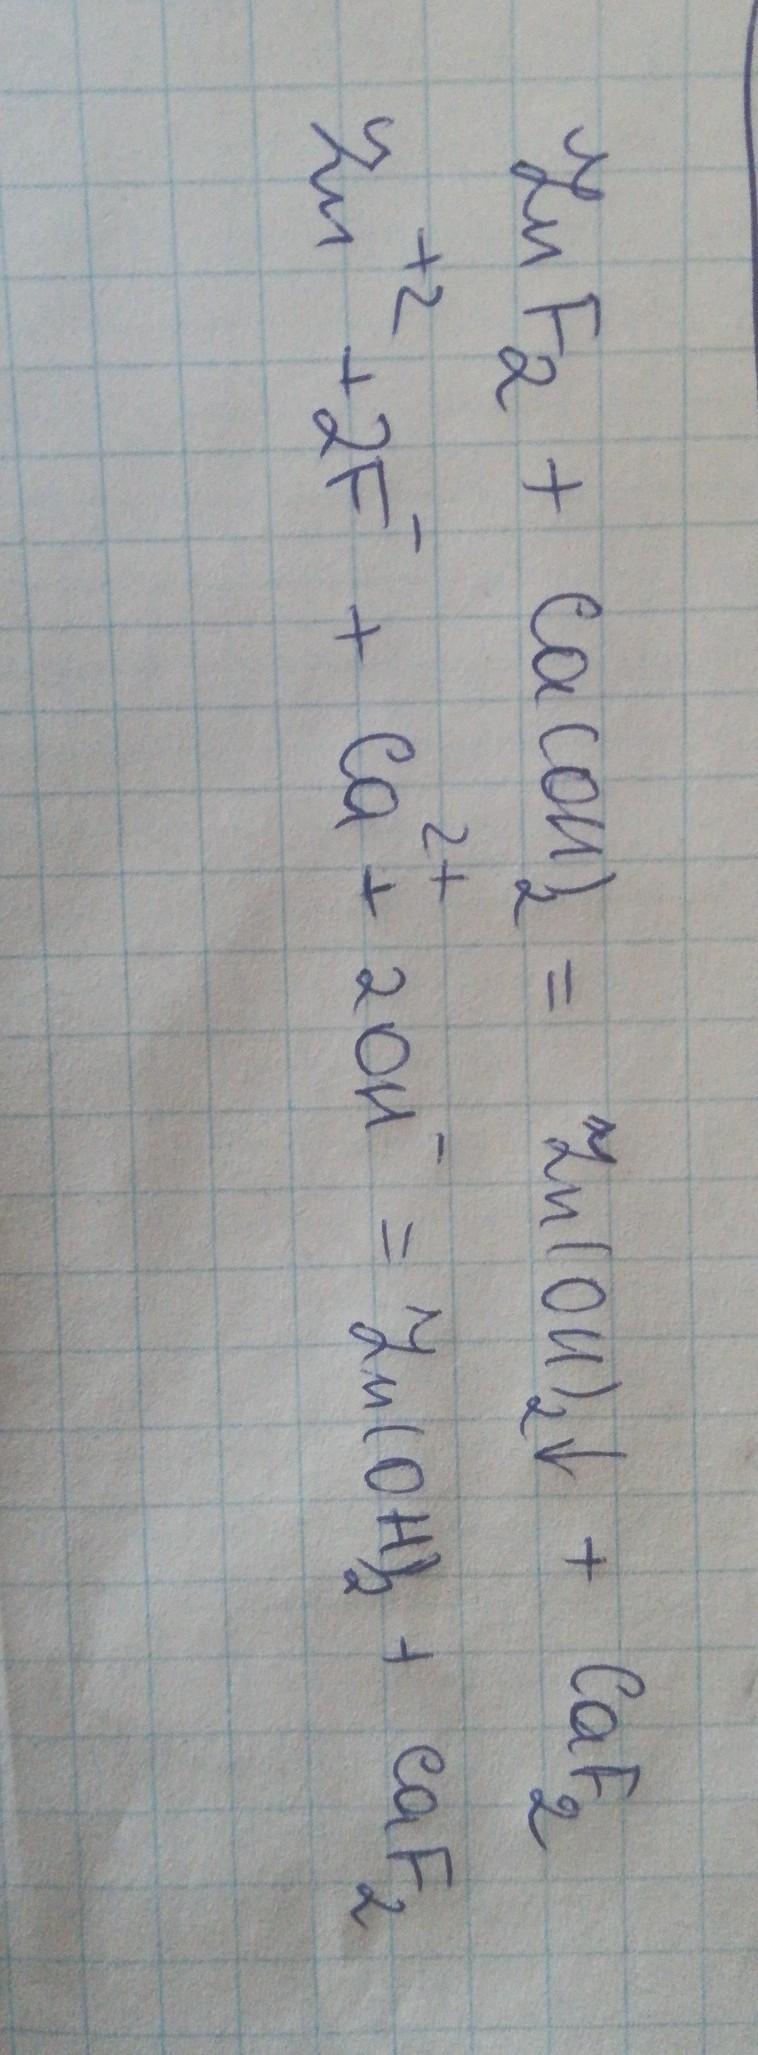 ZnF₂ + Ca(OH)₂ = Zn(OH)₂↓ + CaF₂
Zn⁺² + 2F⁻ + Ca²⁺ + 2OH⁻ = Zn(OH)₂ + CaF₂